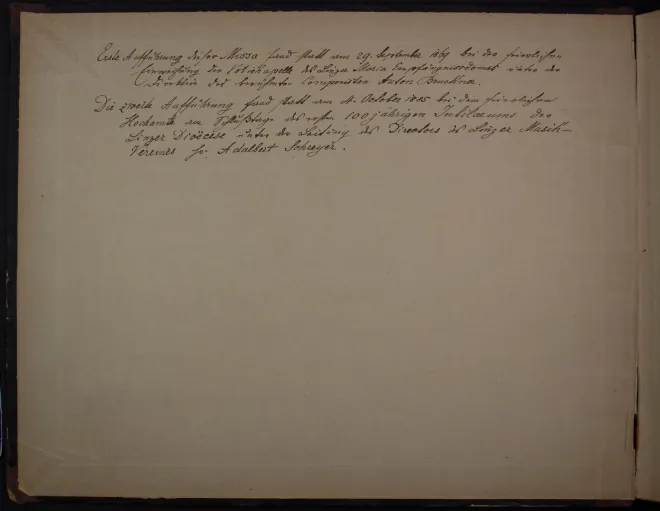 Erste Aufführung dieser Messa fand statt am 29. September 1869 bei der feierlichen
Einweihung der Votivkapelle des Linzer Maria Empfängnissdomes unter der
Direktion des berühmten Componisten Anton Bruckner.
Die zweite Aufführung fand statt am 4. October 1885 bei dem feierlichen
Hochamte am Schlußtage des ersten 100jährigen Jubilaeums der
Linzer Dioecese unter der Leitung des Directors des Linzer Musik-
Vereines Hr. Adalbert Schreyer.